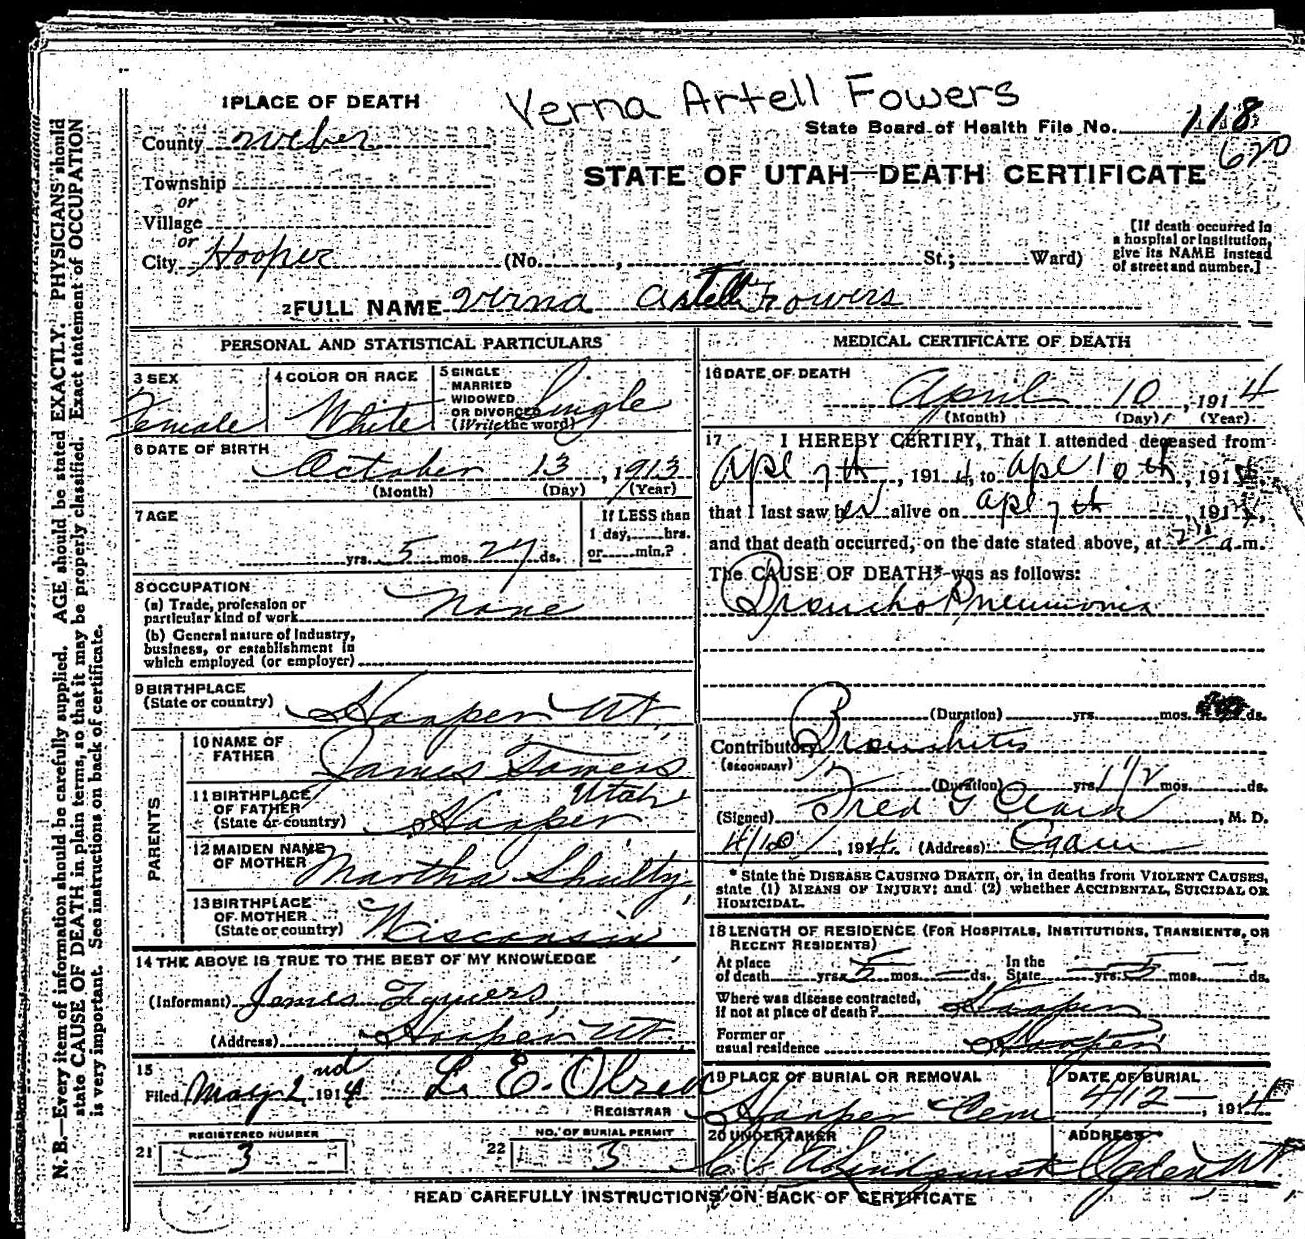 Verna Artell Fowers
1 PLACE OF DEATH
State Board of Health File No. 118
620
County Weber
STATE OF UTAH—DEATH CERTIFICATE
Township
or
Village
or
City Hooper (No. , St.; Ward)
[If death occurred in
a hospital or institution,
give its NAME instead
of street and number.]
2 FULL NAME Verna Artell Fowers
PERSONAL AND STATISTICAL PARTICULARS
3 SEX
Female
4 COLOR OR RACE
White
5 SINGLE
MARRIED
WIDOWED
OR DIVORCED
(Write the word)
Single
6 DATE OF BIRTH
October 13, 1913
(Month) (Day) (Year)
7 AGE
yrs. 5 mos. 27 ds.
If LESS than
1 day, hrs.
or min.?
8 OCCUPATION
(a) Trade, profession or
particular kind of work None
(b) General nature of Industry,
business, or establishment in
which employed (or employer)
9 BIRTHPLACE
(State or country) Hooper Ut.
PARENTS
10 NAME OF
FATHER James Fowers
11 BIRTHPLACE
OF FATHER
(State or country) Hooper Utah
12 MAIDEN NAME
OF MOTHER Martha
13 BIRTHPLACE
OF MOTHER
(State or country) Wisconsin
14 THE ABOVE IS TRUE TO THE BEST OF MY KNOWLEDGE
(Informant) James Fowers
(Address) Hooper Ut.
15
Filed May 2nd 1914 L. E. Olsen
REGISTRAR
21 REGISTERED NUMBER
3
22 NO. OF BURIAL PERMIT
3
MEDICAL CERTIFICATE OF DEATH
16 DATE OF DEATH
April 10, 1914
(Month) (Day) (Year)
17 I HEREBY CERTIFY, That I attended deceased from
Apl 7th, 1914, to Apl 10th, 1914,
that I last saw her alive on Apl 7th, 1914,
and that death occurred, on the date stated above, at a.m.
The CAUSE OF DEATH* was as follows:
Broncho Pneumonia
(Duration) yrs. mos. ds.
Contributory Bronchitis
(SECONDARY)
(Duration) yrs. 1 1/2 mos. ds.
(Signed) Fred G, M. D.
4/10, 1914. (Address)
* State the DISEASE CAUSING DEATH, or, in deaths from VIOLENT CAUSES,
state (1) MEANS OF INJURY; and (2) whether ACCIDENTAL, SUICIDAL OR
HOMICIDAL.
18 LENGTH OF RESIDENCE (FOR HOSPITALS, INSTITUTIONS, TRANSIENTS, OR
RECENT RESIDENTS)
At place
of death yrs. 5 mos. — ds.
In the
State — yrs. 5 mos. — ds.
Where was disease contracted,
if not at place of death? Hooper
Former or
usual residence Hooper
19 PLACE OF BURIAL OR REMOVAL
Hooper Cem
DATE OF BURIAL
4/12—, 1914
20 UNDERTAKER
ADDRESS
Ogden, Ut
READ CAREFULLY INSTRUCTIONS ON BACK OF CERTIFICATE
N. B.—Every item of information should be carefully supplied. AGE should be stated EXACTLY. PHYSICIANS should
state CAUSE OF DEATH in plain terms, so that it may be properly classified. Exact statement of OCCUPATION
is very important. See instructions on back of certificate.